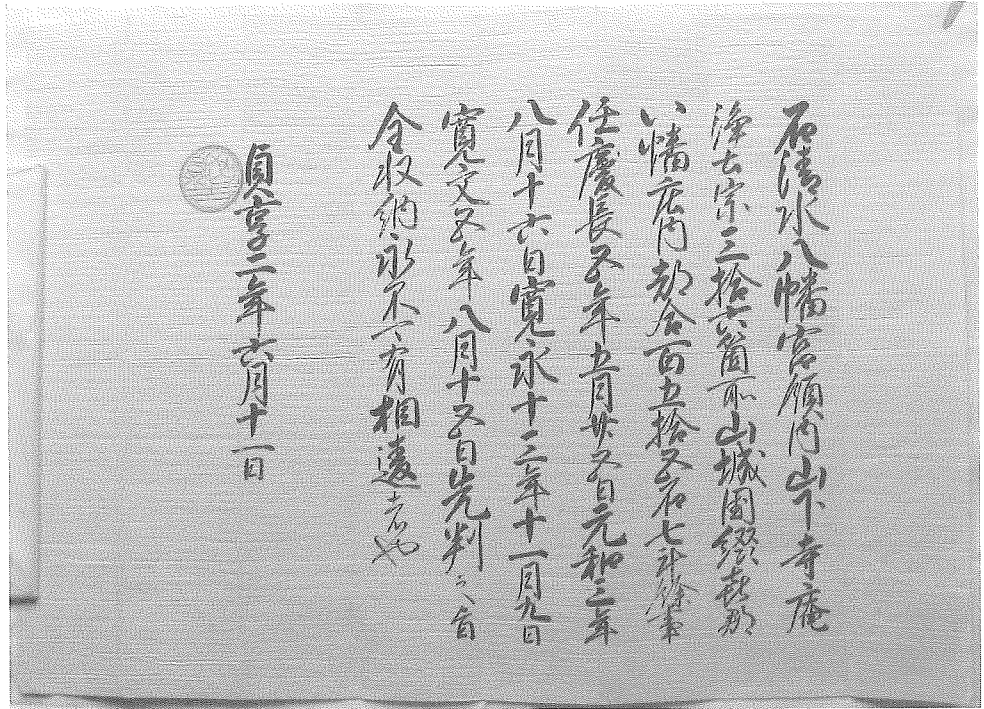 石清水八幡宮領内山下寺庵
浄土宗三拾六箇所山城国綴喜郡
八幡庄内都合百五拾五石七斗餘事
任慶長五年五月廿五日元和三年
八月十六日寛永十三年十一月九日
寛文五年八月十五日先判之旨
全収納永不可有相違者也
貞享二年六月十一日